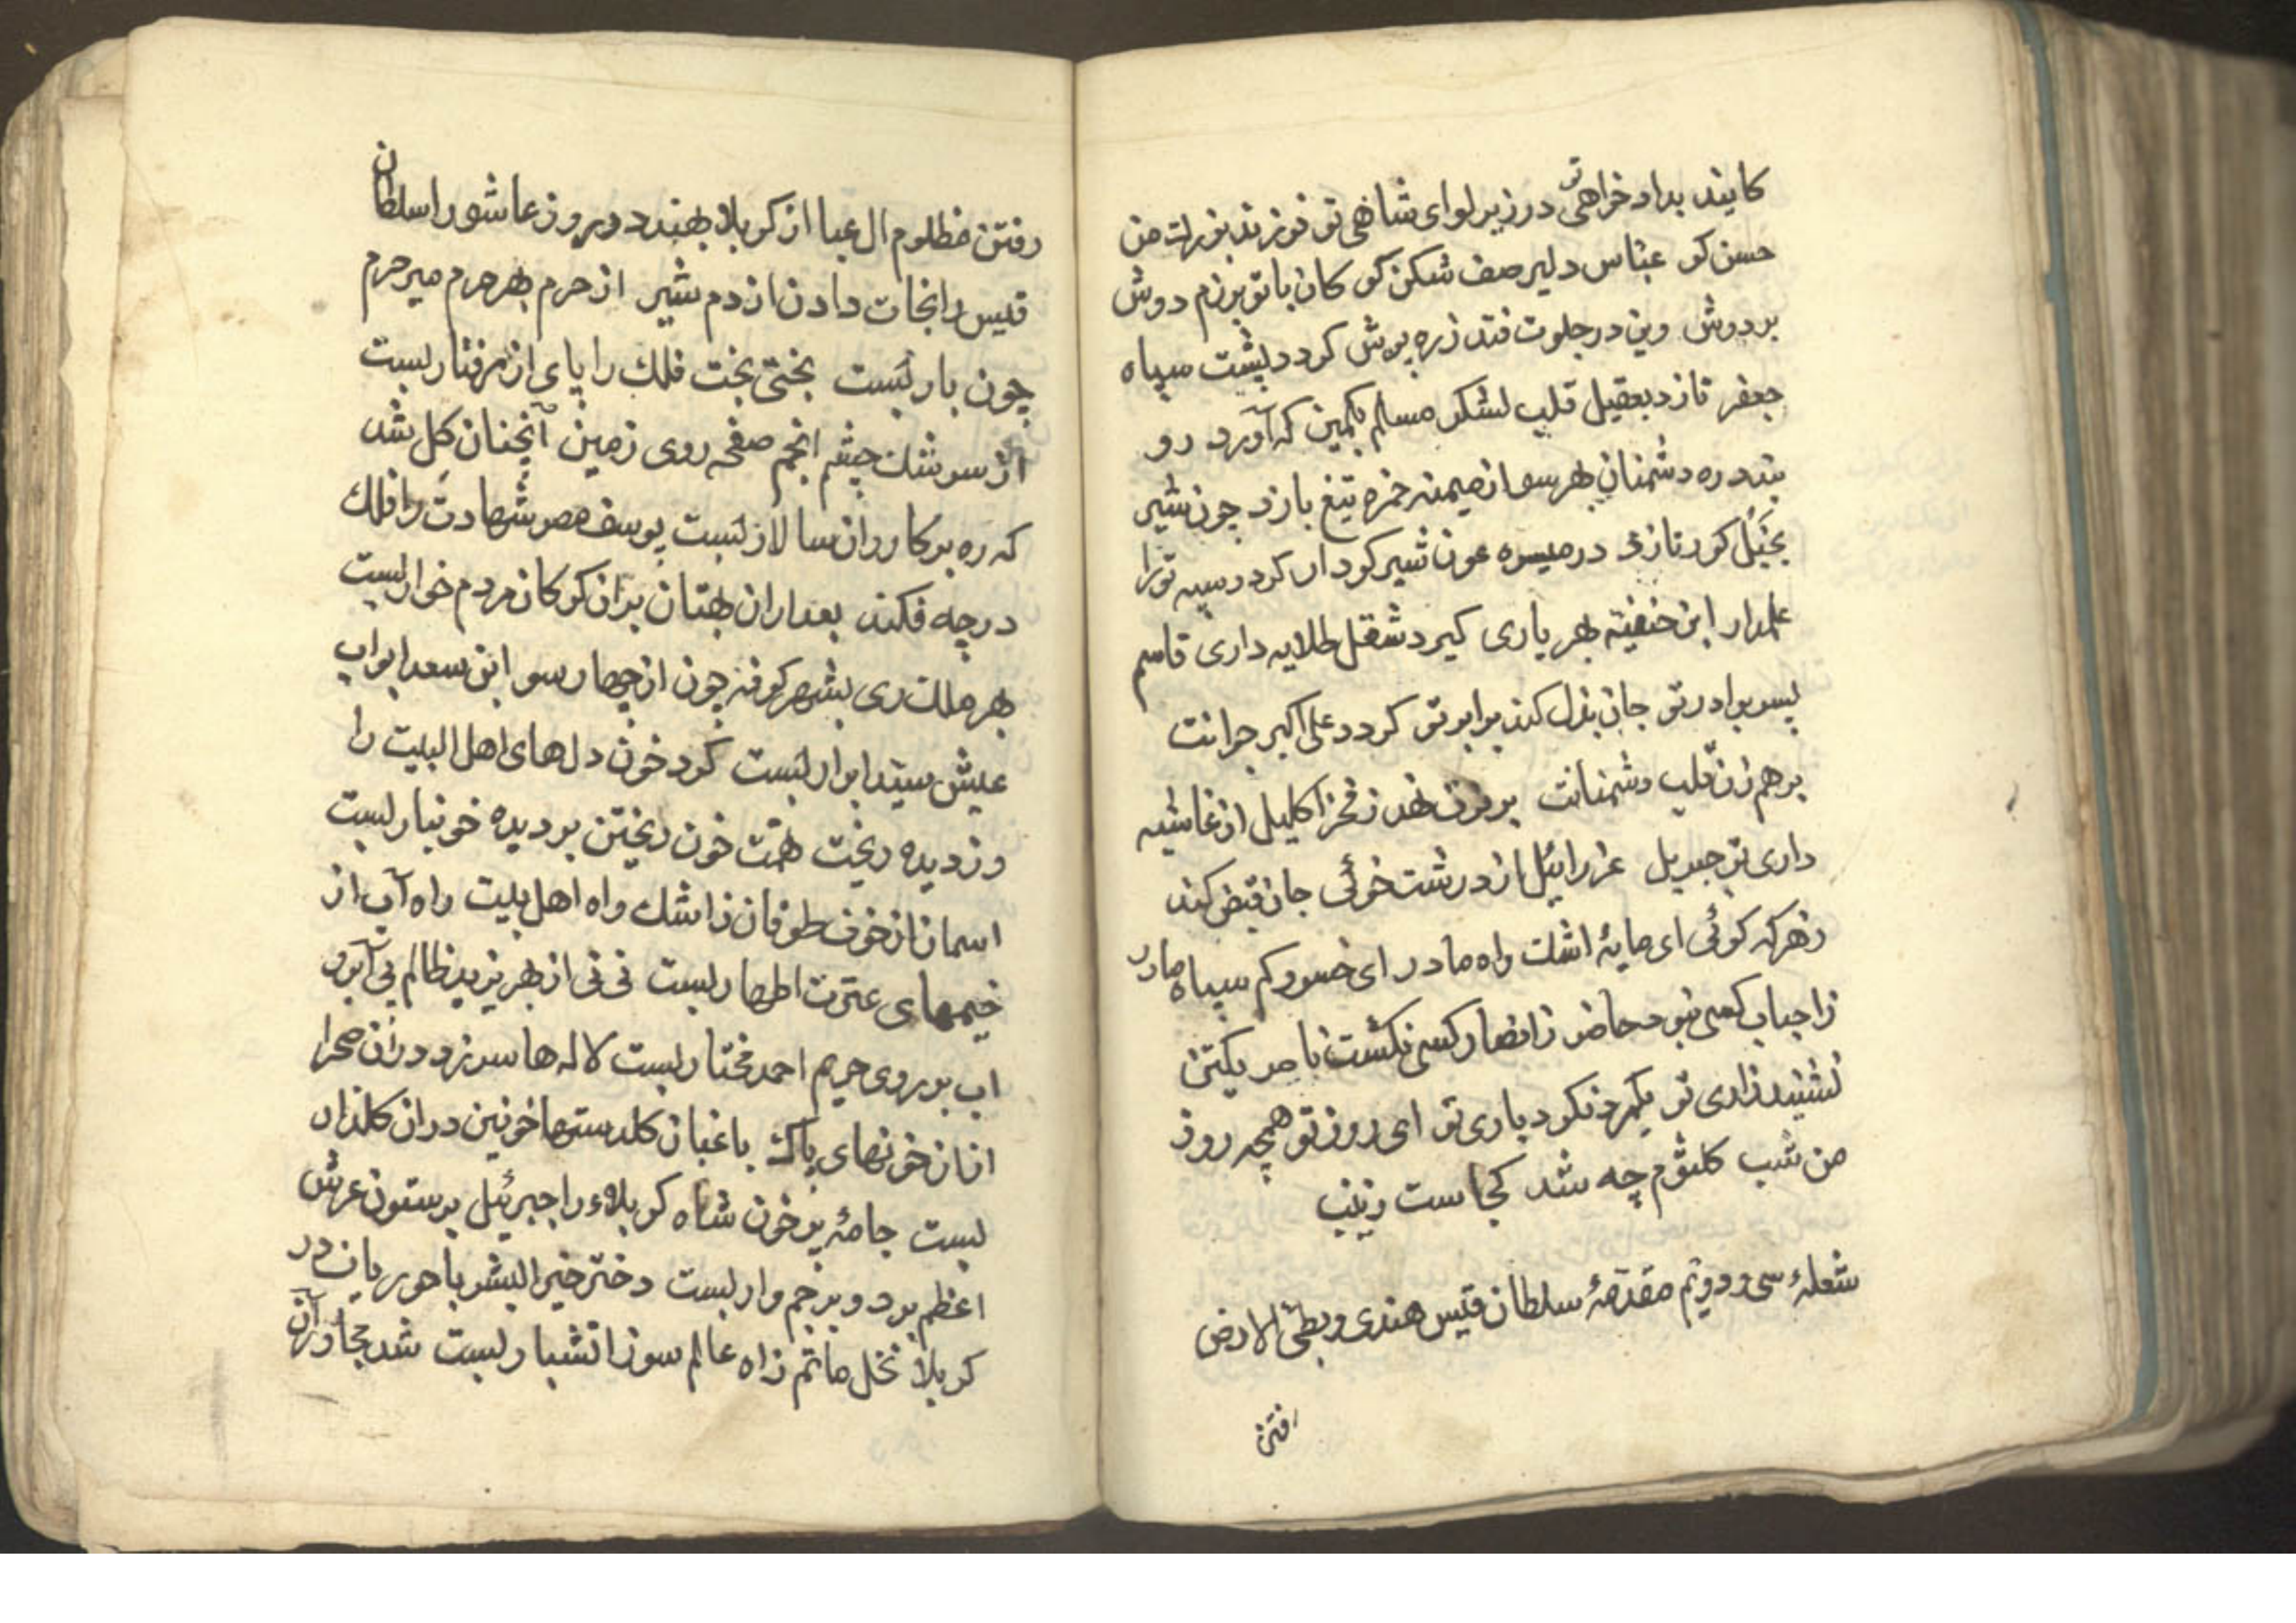 کایند بداد خراهی تو در زیر لوای شاهی تو فرزند بزرك من
حسن کو عباس دلیر صف شکن کو کان با تو برزم دوش
بر دوش وین در جلوت فتد زره پوش کردد بپشت سپاه
جعفر تازد بعقیل قلب لشکر مسلم بکمین که آورد رو
بندد ره دشمنان بهر سو از میمنه حمزه تیغ بازد چون شیر
بخیل کور تازد در میسره عون شیر کردار کردد سپه ترا
علمدار ابن حنفیه بهر یاری کیرد شغل طلایه داری قاسم
پسر برادر تو جان بذل کند برابر تو کردد علی اکبر جوانت
برهم زن قلب دشمنانت بر فرق نهد ز فخر اکلیل از غاشیه
داری تو جبریل عزراییل از درشت خوئی جان قبض کند
زهر که کوئی ای مایهٔ اشك واه مادر ای خسرو کم سپاه مادر
ز احباب کسی نبود حاضر ز انصار کسی نکشت ناصر یکتن
نشنید زاری تو یکمرد نکرد یاری تو ای روز تو همچه روز
من شب کلثوم چه شد کجاست زینب
شعلهٔ سی و دویم مقدمهٔ سلطان قیس هندی و بطی الارض
رفتن
رفتن مظلوم ال عبا از کربلا بهند در روز عاشورا سلطان
قیس را نجات دادن از دم شیر از حرم بهر حرم میر حرم
چون بار بست بختی بخت فلك را پای از رفتار بست
از سرشك چشم انجم صفحه روی زمین آنچنان کل شد
که ره بر کاروان سالار بست یوسف مصر شهادت را فلك
در چه فکند بعد از ان بهتان بران کرکان مردم خوار بست
بهر ملك ری بشهر کوفه چون از چهار سو ابن سعد ابواب
عیش سید ابرار بست کرد خون دلهای اهل البیت را
وز دیده ریخت همت خون ریختن بر دیده خونبار بست
اسمان از خوف طوفان ز اشك واه اهل بیت راه آب از
خیمهای عترت اطهار بست نی نی از بهر یزید ظالم بی آبرو
اب بر روی حریم احمد مختار بست لاله ها سر زد دران صحرا
ازان خونهای پاك باغبان کلدستها خونین دران کلذار
بست جامهٔ پر خون شاه کربلاء را جبرئیل بر ستون عرش
اعظم برد و پرچم وار بست دختر خیر البشر با حوریان در
کربلا نخل ماتم زاه عالم سوز اتشبار بست شد مجاور آن